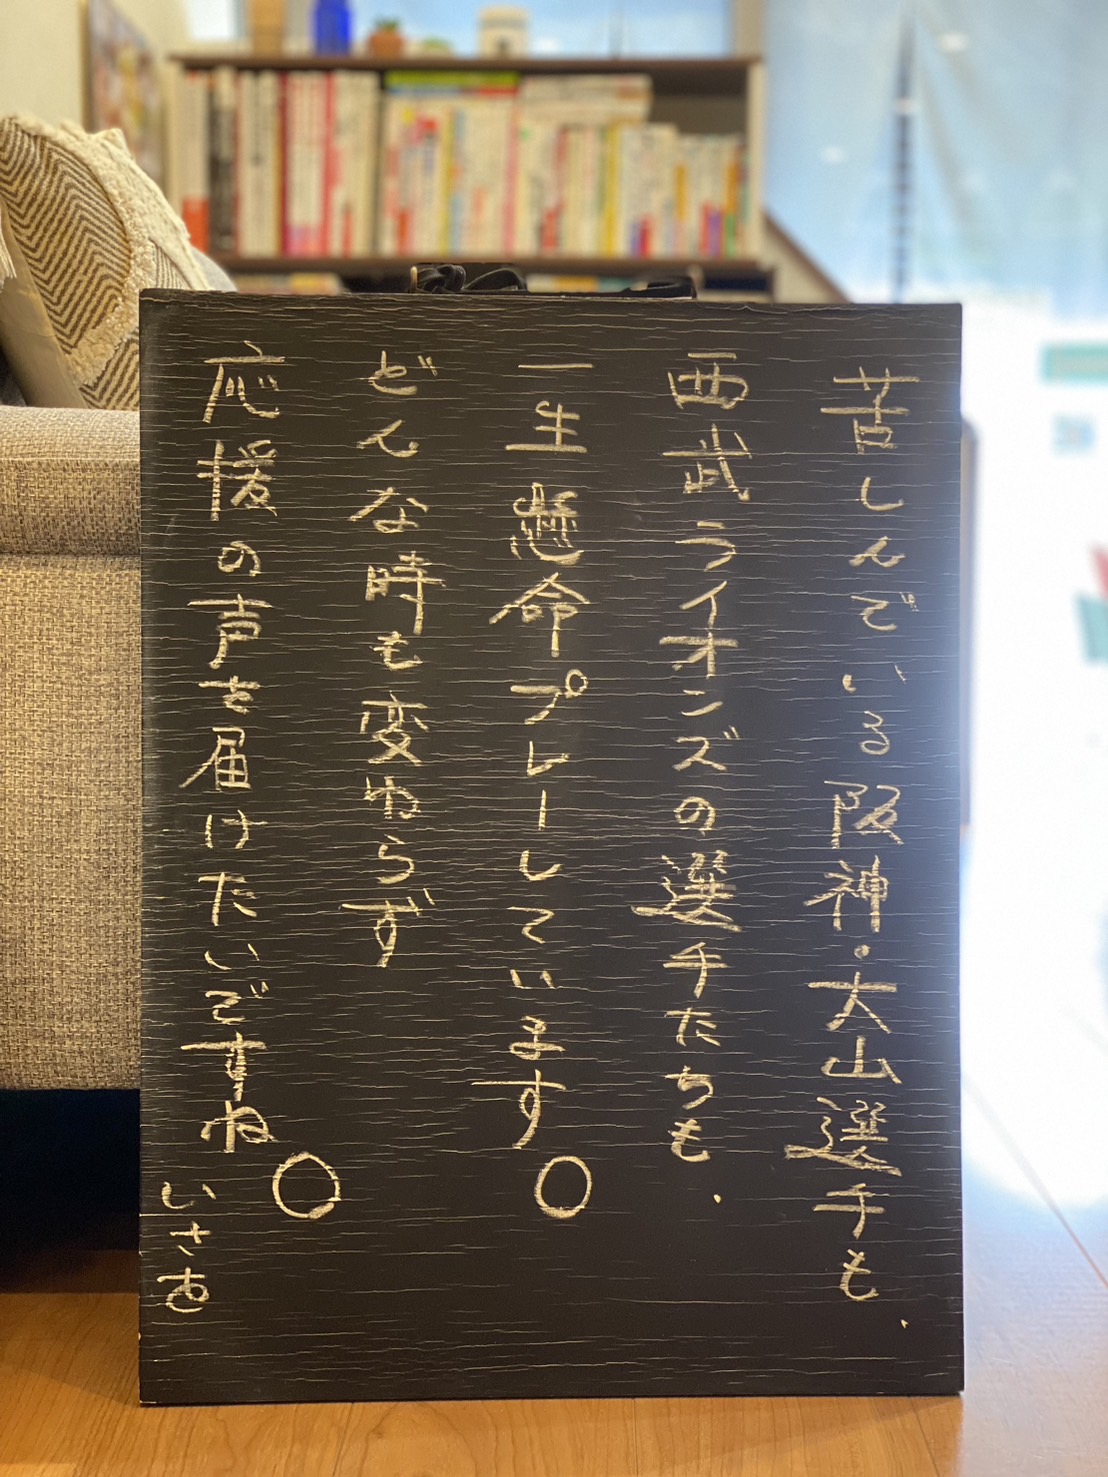 苦しんでいる阪神・大山選手も、
西武ライオンズの選手たちも、
一生懸命プレーしています。
どんな時も変わらず
応援の声を届けたいですね。
いさを